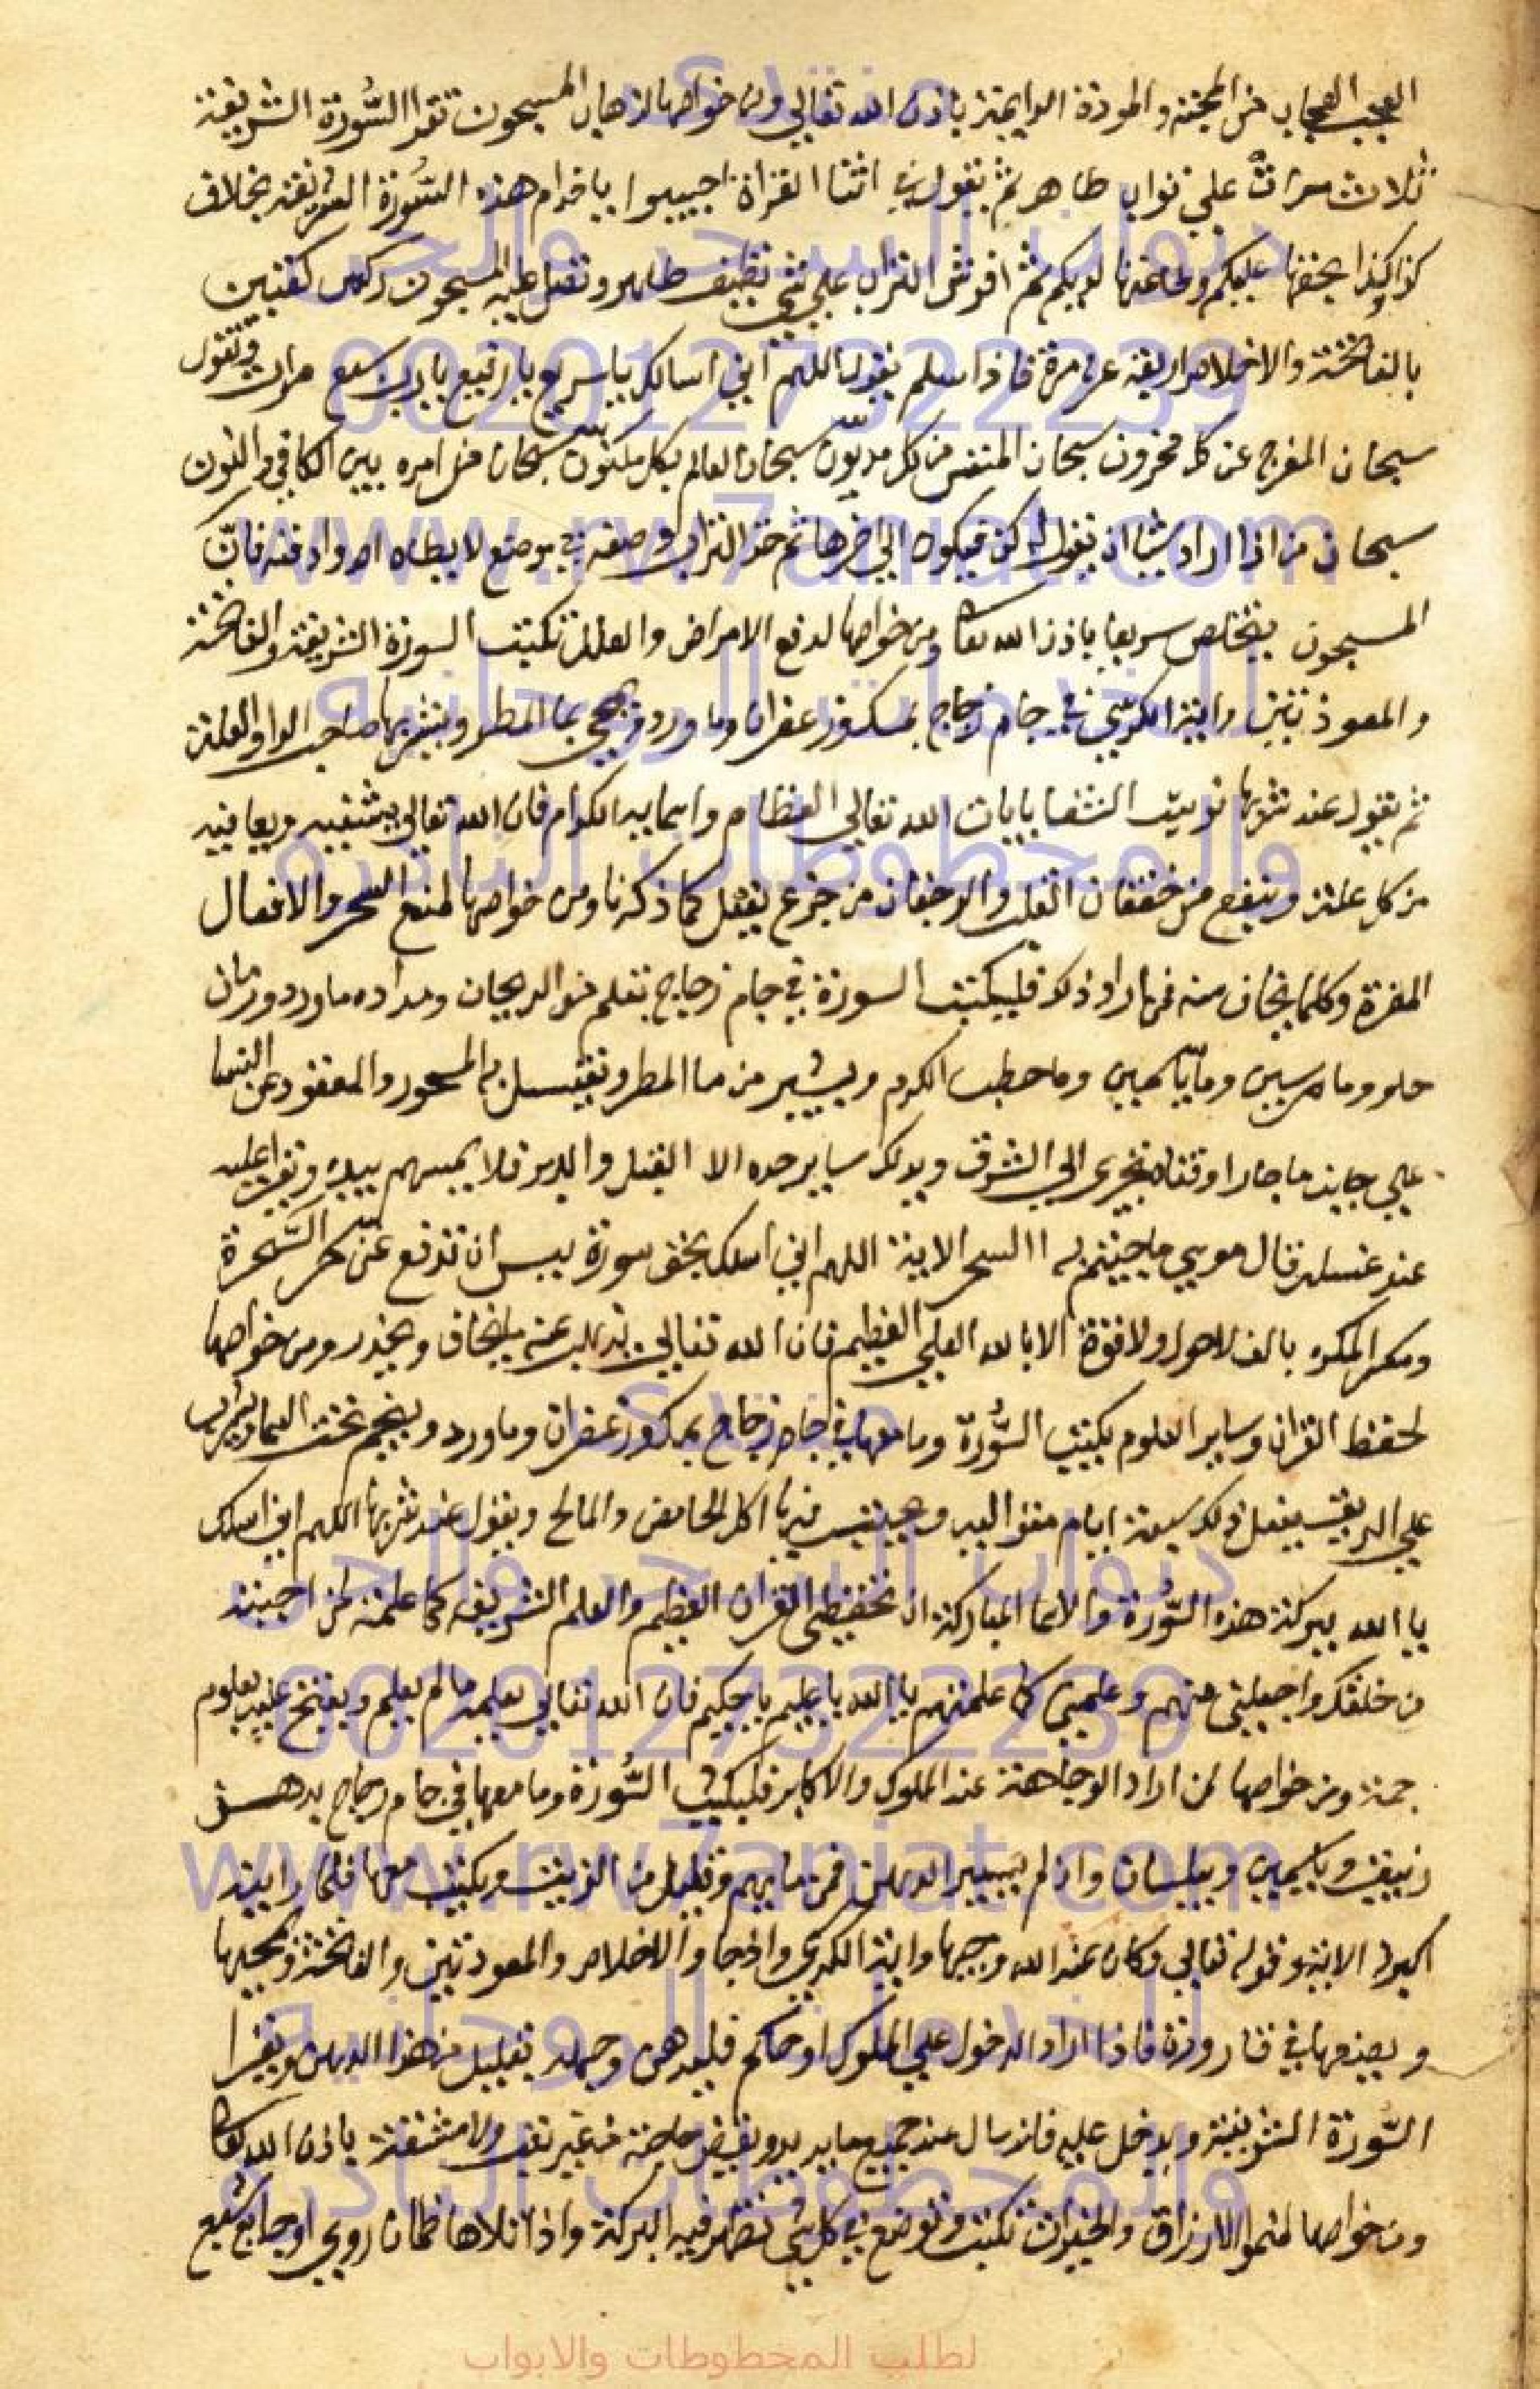 العجب العجاب من المحبة والمودة الدايمة باذن الله تعالي ومن خواصها لذهاب المسجون تقرا السورة الشريفة
ثلاث مرات علي تراب طاهر ثم يقول في اثنا القراة اجيبوا يا خدام هذه السورة الشريفة بخلاف
كذا وكذا بحقها عليكم وطاعتها لديكم ثم افرش التراب علي شي نظيف طاهر وتصل عليه المسجون ركعتين
بالفاتحة والاخلاص مرة فاذا سلم يقول اللهم اني اسالك يا سريع يا رفيع يا رب سبع مرات وتقول
سبحان المفرج عن كل محزون سبحان المنفس عن كل مديون سبحان العالم بكل مكنون سبحان من امره بين الكاف والنون
سبحان من اذا اراد شيا ان يقول له كن فيكون الي اخرها ثم خذ التراب وضعه في موضع لا يطاه احد وادفنه فان
المسجون يتخلص سريعا باذن الله تعا ومن خواصها لدفع الامراض والعلل تكتب السورة الشريفة والفاتحة
والمعوذتين واية الكرسي في جام زجاج بمسك وزعفران وما ورد وتمحي بما المطر ويشربها صاحب الدا والعلة
ثم يقول عند شربها نويت الشفا بايات الله تعالي العظام واسمايه الكرام فان الله تعالي يشفيه ويعافيه
من كل علة وينفع من خفقان القلب والرجفان من جزع يفعل كما ذكرنا ومن خواصها لمنع السحر والافعال
المضرة وكلما يخاف منه فمن اراد ذلك فليكتب السورة في جام زجاج بقلم من الريحان ومداده ما ورد ورمان
حلو وما مرسين وما ياسمين وما حطب الكرم ويشير من ما المطر ويغتسل به المسحور والمعقود عن النسا
علي جانب ما جار او قناة تجري الي الشرق ويدلك ساير جسده الا القبل والدبر فلا يمسهم بيده وتقرا عليه
عند غسله قال موسي ما جيتم به االسحر الاية اللهم اني اسلك بحق سورة يس ان تدفع عن سحر السحرة
ومكر المكره بالف لا حول ولا قوة الا بالله العلي العظيم فان الله تعالي يذهب عنه ما يخاف ويحذر ومن خواصها
لحفظ القران وساير العلوم يكتب السورة وما معها في جام زجاج بمسك وزعفران وما ورد وينجم تحت السما ويشرب
علي الريق يفعل ذلك سبعة ايام متواليه ويجتنب فيها اكل الحامض والمالح ويقول عند شربها اللهم اني اسلك
يا الله ببركة هذه السورة والاسما المباركة ان تحفظني القران العظيم والعلم الشريف كما علمته لمن احببته
من خلقك واجعلني منهم وعلمني كما علمتهم يا الله يا عليم يا حكيم فان الله تعالي يعلمه ما لم يعلم ويفتح عليه بعلوم
جمة ومن خواصها لمن اراد الوجاهة عند الملوك والاكابر فليكتب السورة وما معها في جام زجاج بدهن
زنبق وياسمين وبيلسان وان لم يتيسر الدهن فمن مايهم وقليل من الزيت ويكتب معها فلما راينه
اكبرنه الاية وقوله تعالي وكان عند الله وجيها واية الكرسي واذا جا والاخلاص والمعوذتين والفاتحة وتمحيها
ويضعها في قارورة فاذا اراد الدخول علي الملوك او حاكم فليدهن وجهه بقليل من هذا الدهن ويقرا
السورة الشريفة ويدخل عليه فانه ينال منه جميع ما يريد ويقضي حاجته من غير تعب ولا مشقة باذن الله تعا
ومن خواصها لنمو الارزاق والخيرات تكتب وتوضع في كل شي تظهر فيه البركة واذا تلاها ظمان روي او جايع شبع
منتدى
ديوان السحر والجن
00201273222239
www.rw7aniat.com
للخدمات الروحانيه
والمخطوطات النادره
منتدى
ديوان السحر والجن
00201273222239
www.rw7aniat.com
للخدمات الروحانيه
والمخطوطات النادره
لطلب المخطوطات والابواب